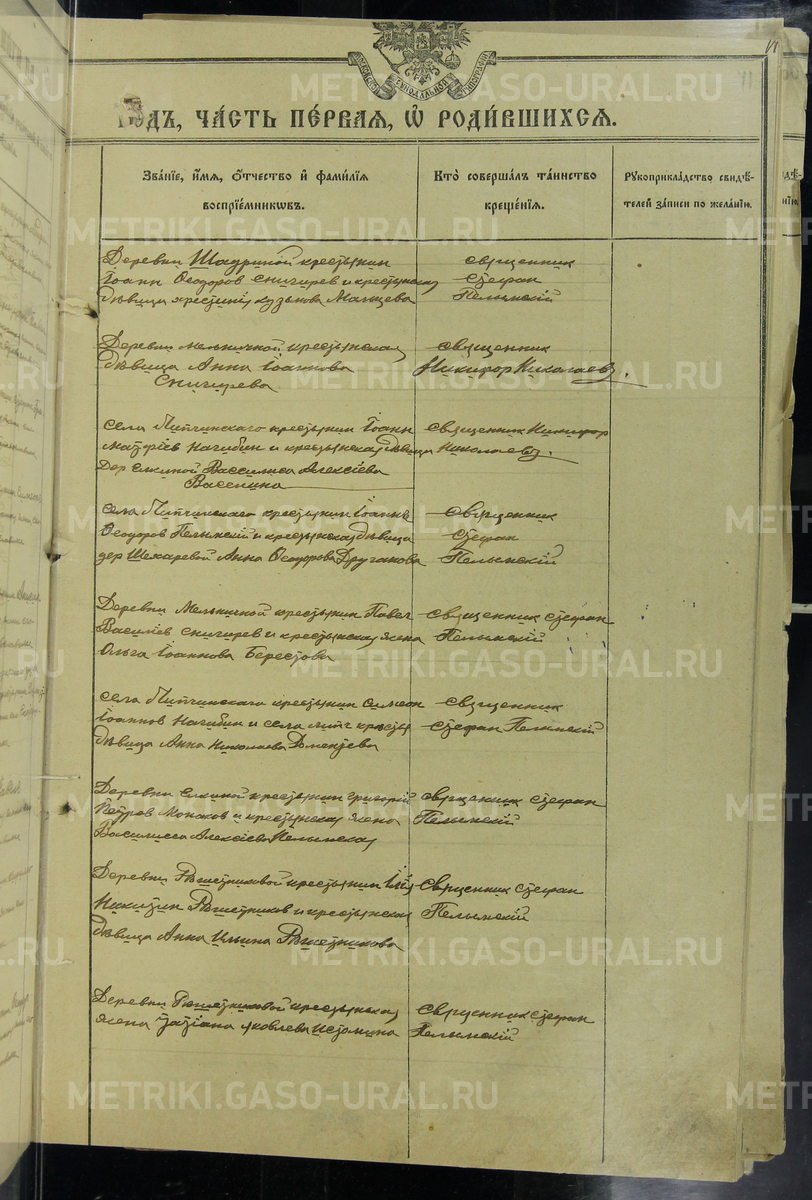 МОСКОВСКОЙ СѴНОДАЛЬНОЙ ТИПОГРАФІИ
ГОДЪ, ЧА́СТЬ ПЕ́РВАЯ, Ѡ҆ РОДИ́ВШИХСЯ.
Зва́нїе, и҆́мя, ѻ҆́тчество и҆ фами́лїя
воспрїе́мникѡвъ.
Кто̀ соверша́лъ та́инство
креще́нїя.
Рукоприкла́дство свидѣ́-
телей за́писи по жела́нїю.
Деревни Шадриной крестьянин
Іоанн Ѳеодоров Снигирев и крестьянская
дѣвица Христинія Кузьмова Мальцева
священник
Стефан
Пелымскій
Деревни Мельничной крестьянская
дѣвица Анна Іоаннова
Снигирева
священник
Никифор Николаев.
села Липчинскаго крестьянин Іоанн
Матѳіев Нагибин и крестьянская дѣвица
дер Елкиной Василиса Алексіева
священник Никифор
Николаев.
села Липчинскаго крестьянин Іоанн
Ѳеодоров Пелымскій и крестьянская дѣвица
дер Шехаревой Анна Ѳеодорова
священник
Стефан
Пелымскій
Деревни Мельничной крестьянин Павел
Василіев Снигирев и крестьянская жена
Ольга Іоаннова Берестова
священник Стефан
Пелымскій
села Липчинскаго крестьянин Симеон
Іоаннов Нагибин и села Липч кресть
дѣвица Анна Николаева Дементьева
священник
Стефан Пелымскій
Деревни Елкиной крестьянин Григорій
Петров и крестьянская жена
Василисса Алексіева Пелымская
священник Стефан
Пелымскій
Деревни Рѣшетниковой крестьянин Илія
Никитин Рѣшетников и крестьянская
дѣвица Анна Ильина Рѣшетникова
священник Стефан
Пелымскій
Деревни Рѣшетниковой крестьянская
жена Татіана Яковлева Истомина
священник Стефан
Пелымскій
METRIKI.GASO-URAL.RU